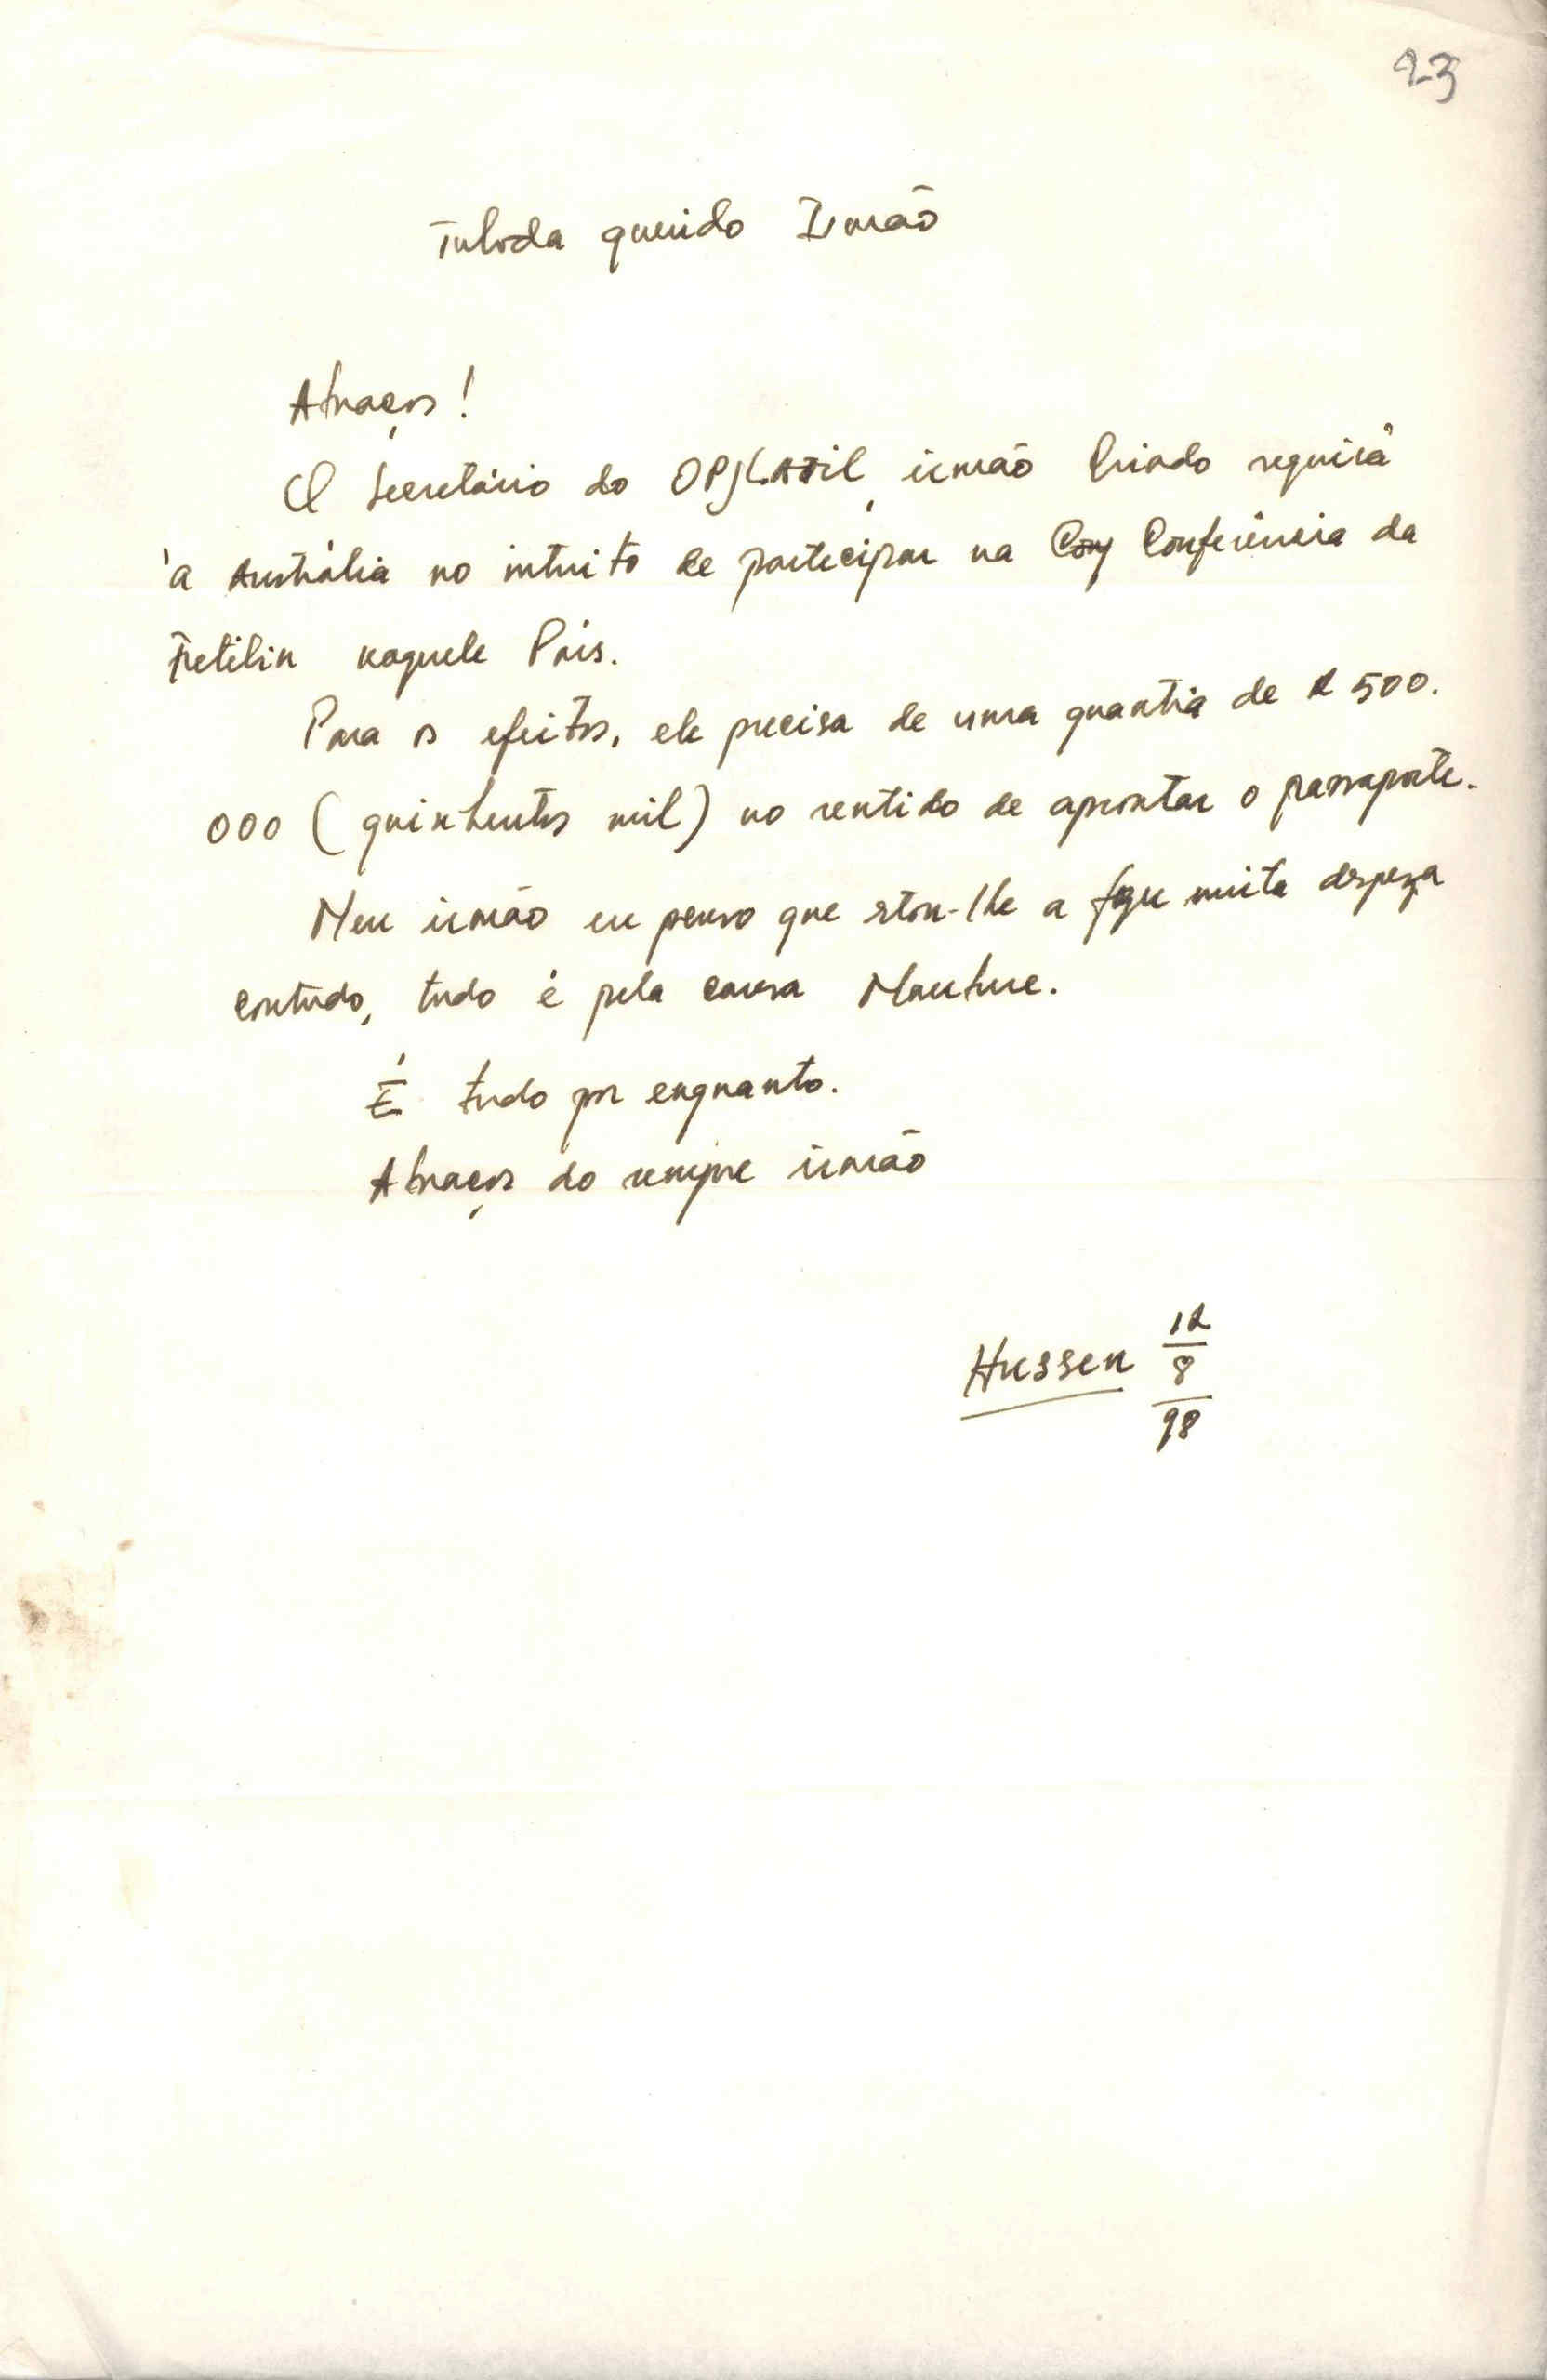 23
Tuloda querido Irmão
Abraços!
O Secretário do OPJLATIL, irmão Criado seguirá
à Austrália no intuito de partecipar na Conferência da
Fretilin naquele País.
Para os efeitos, ele precisa de uma quantia de R 500.
000 (quinhentos mil) no sentido de aprontar o passaporte.
Meu irmão eu penso que estou-lhe a fazer muita despeza
contudo, tudo é pela causa Maubere.
É tudo por enquanto.
Abraços do sempre irmão
Hussen 12
8
98